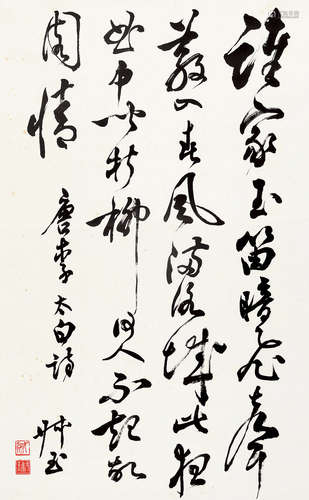 誰家玉笛暗飛聲
散入春風滿洛城此夜
曲中聞折柳何人不起故
園情
唐李太白詩